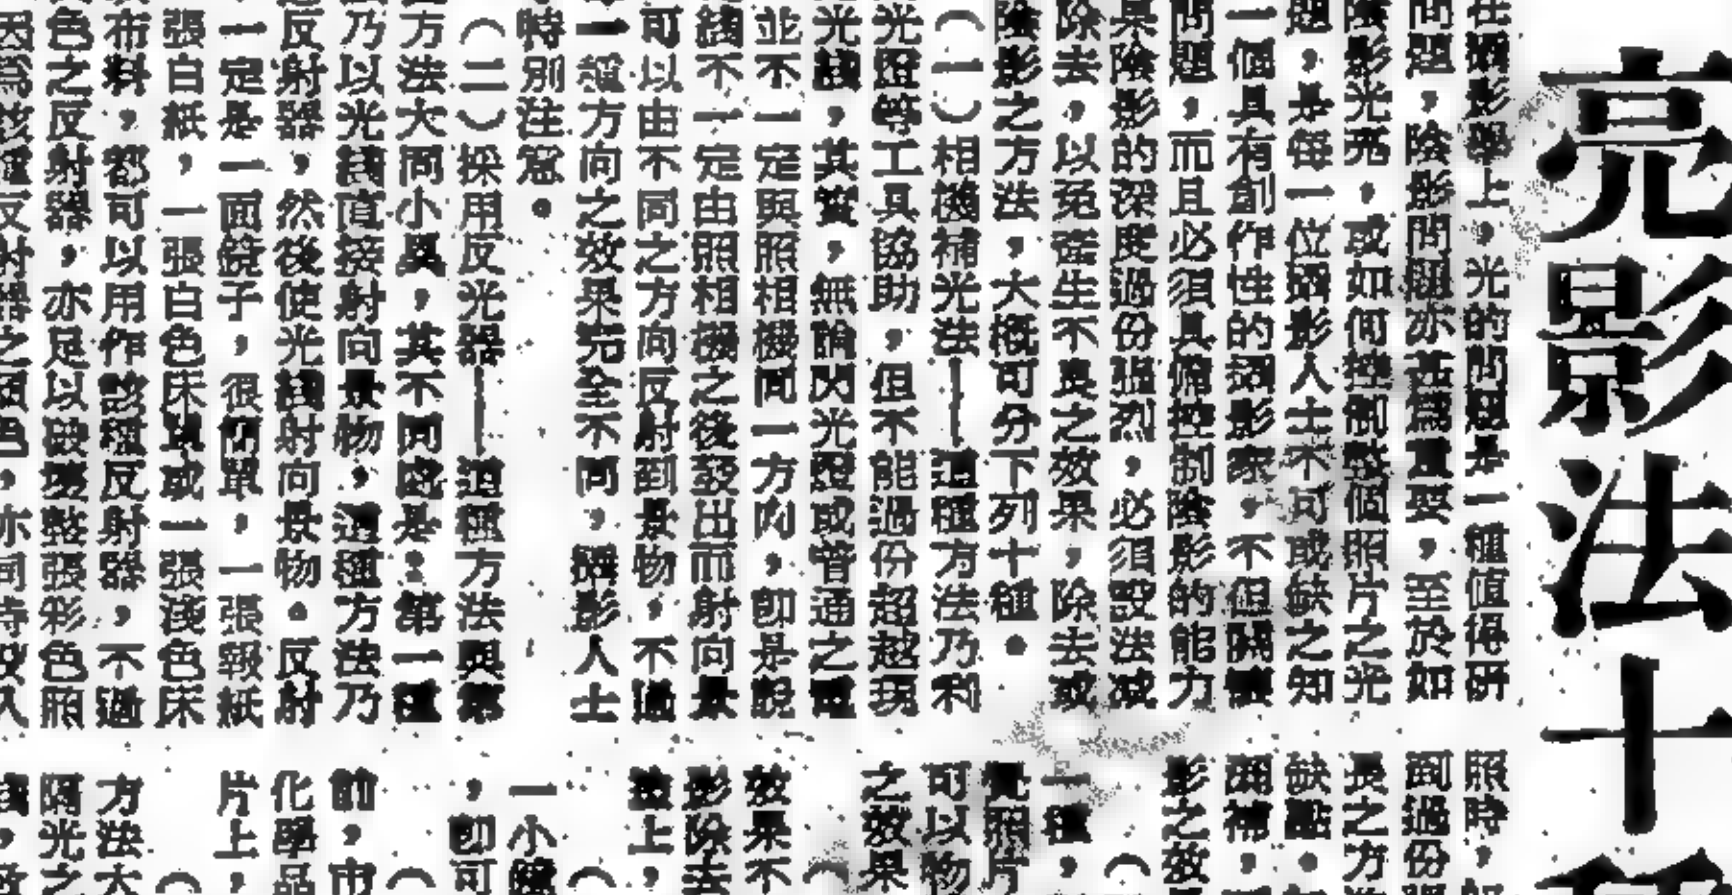 亮影法十
在攝影學上，光的問題是一種值得研
問題，陰影問題亦甚為重要，至於如
陰影光亮，或如何控制整個照片之光
題，是每一位攝影人士不可或缺之知
一個具有創作性的攝影家，不但關懷
問題，而且必須具備控制陰影的能力
某陰影的深度過份強烈，必須設法減
除去，以免產生不良之效果，除去或
陰影之方法，大概可分下列十種。
（一）相機補光法——這種方法乃利
光燈等工具協助，但不能過份超越現
光線，其實，無論閃光燈或普通之電
並不一定與照相機同一方向，卽是說
綫不一定由照相機之後發出而射向景
可以由不同之方向反射到景物，不過
一種方向之效果完全不同，攝影人士
特別注意。
（二）採用反光器——這種方法與第
方法大同小異，其不同處是：第一種
乃以光綫直接射向景物，這種方法乃
反射器，然後使光綫射向景物。反射
一定是一面鏡子，很簡單，一張報紙
張白紙，一張白色床單或一張淺色床
布料，都可以用作該種反射器，不過
色之反射器，亦足以破壞整張彩色照
因為該種反射器之顏色，亦同時
照時，
到過份
長之方
缺點。
補，
影之效
一種，
覺照片
可以物
之效果
效果不
影除去
上，
一小
，卽可
前，市
化學品
片上，
方法大
陽光之